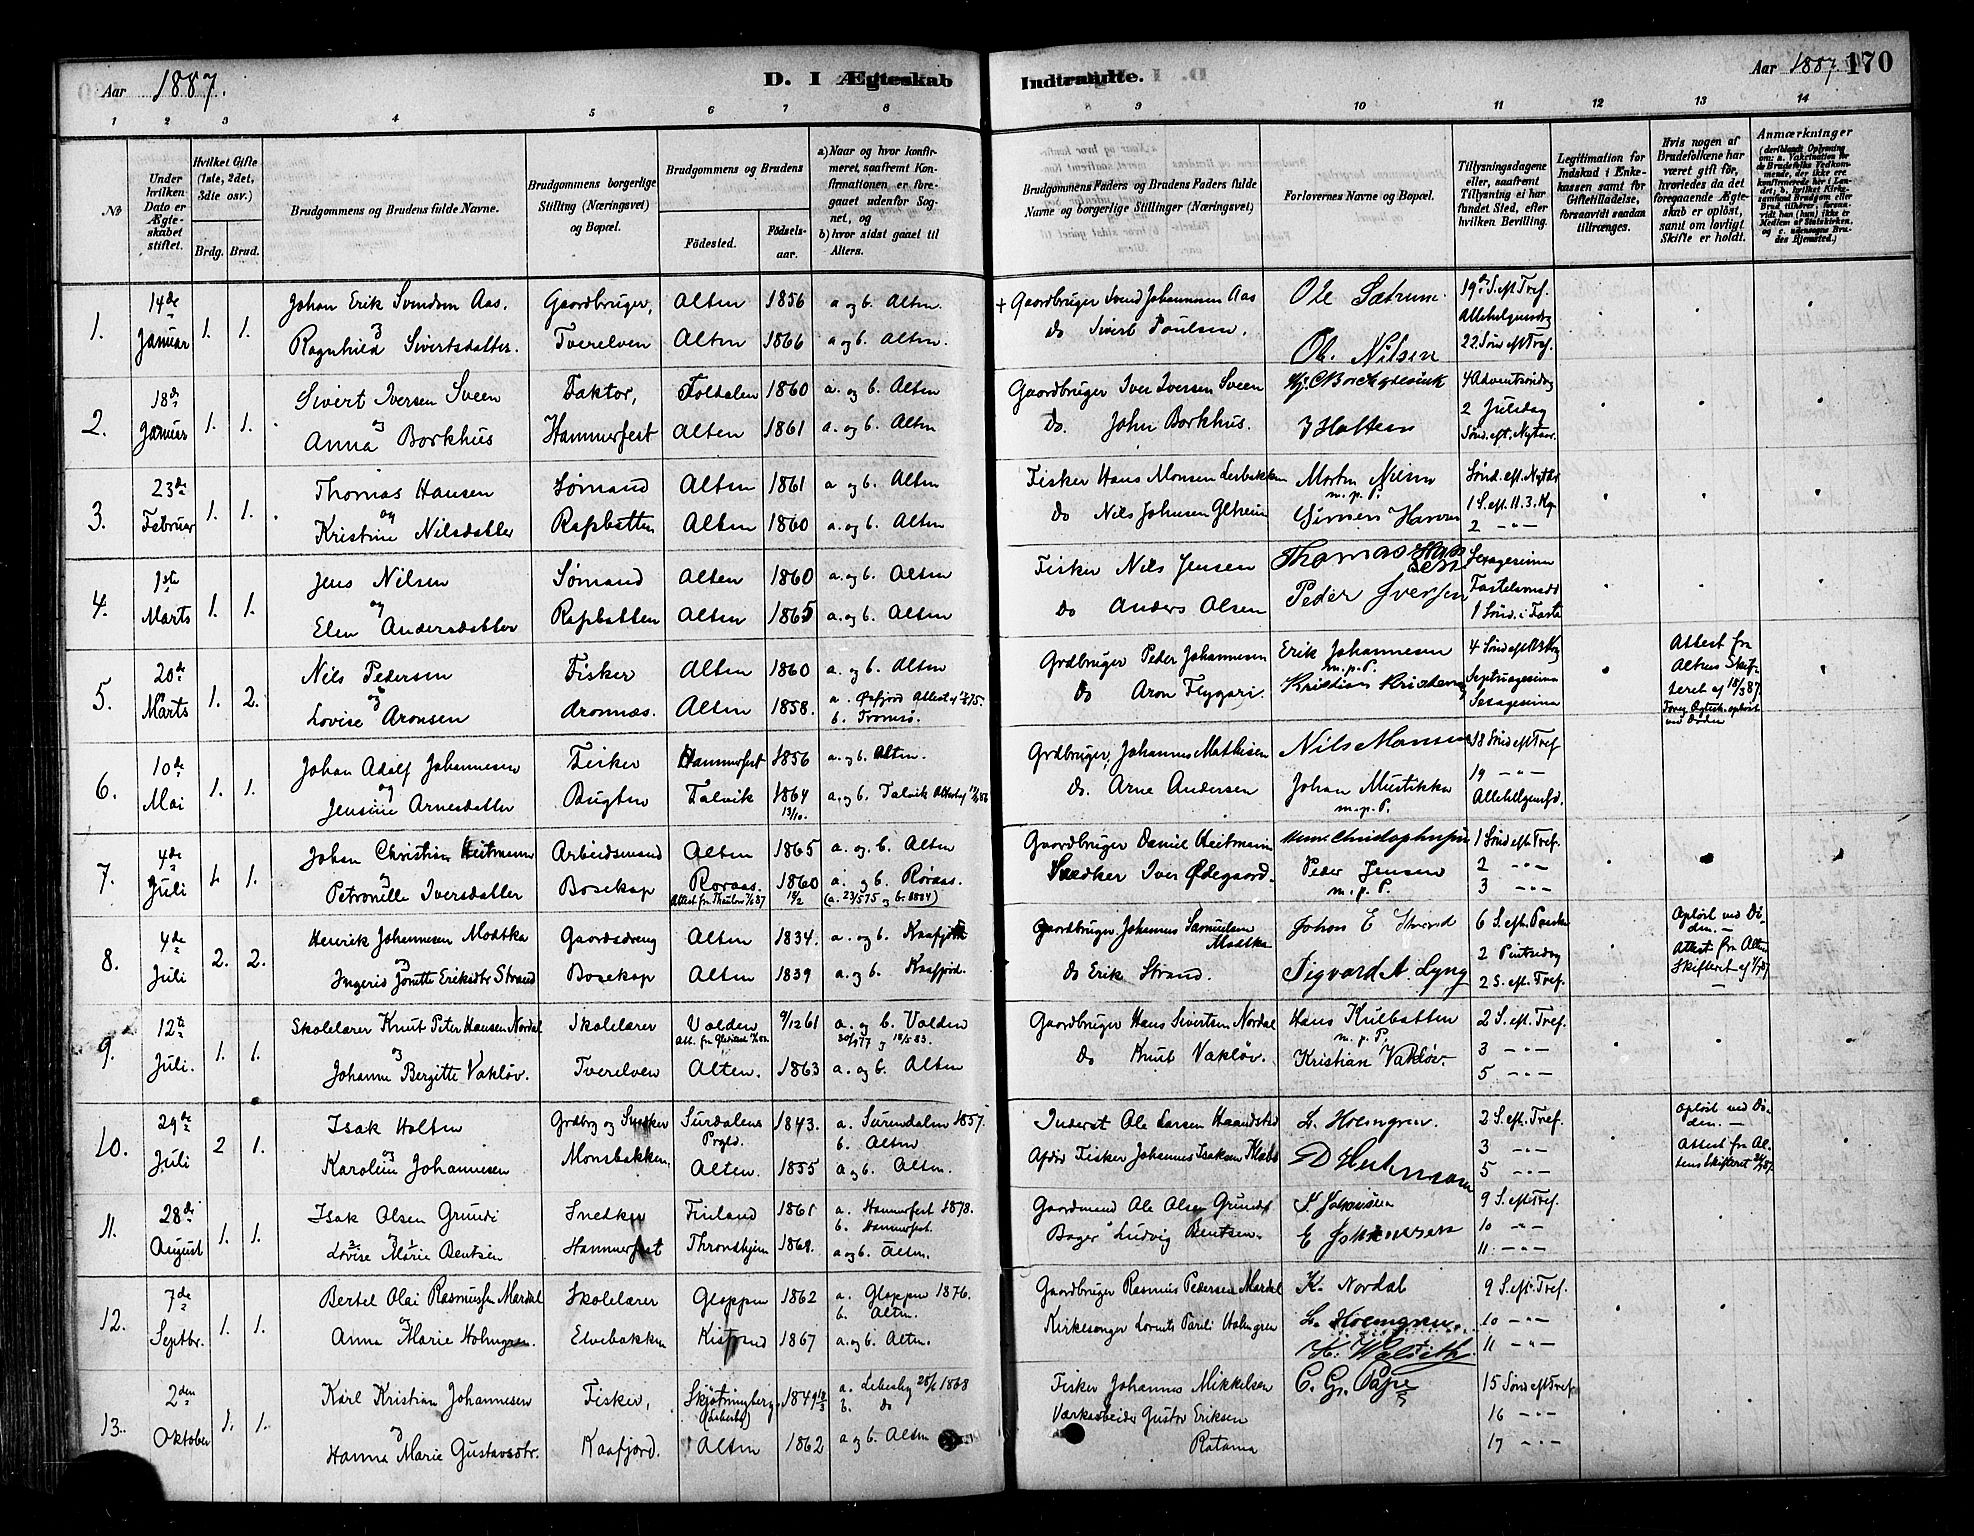 Aar 1887.
D. I Ægteskab
Indtraadte.
Aar 1887. 170
1 2 3 4 5 6 7 8 9 10 11 12 13 14
№
Under hvilken Dato er Ægteskabet stiftet.
Hvilket Gifte (1ste, 2det, 3die osv.)
Brdg. Brud.
Brudgommens og Brudens fulde Navne.
Brudgommens borgerlige Stilling (Næringsvei) og Bopæl.
Brudgommens og Brudens
Fødested.
Fødselsaar.
a) Naar og hvor konfirmeret, saafremt Konfirmationen er foregaaet udenfor Sognet, og
b) hvor sidst gaaet til Alters.
Brudgommens Faders og Brudens Faders fulde Navne og borgerlige Stillinger (Næringsvei)
Forlovernes Navne og Bopæl.
Tillysningsdagene eller, saafremt Tillysning ei har fundet Sted, efter hvilken Bevilling.
Legitimation for Indskud i Enkekassen samt for Giftetilladelse, forsaavidt saadan tiltrænges.
Hvis nogen af Brudefolkene har været gift før, hvorledes da det foregaaende Ægteskab er opløst, samt om lovligt Skifte er holdt.
Anmærkninger
1. 14de Januar 1. 1. Johan Erik Svendsen Aas. Gaardbruger, Alten 1856 a og b. Alten. + Gaardbruger Svend Johannesen Aas Ole Sætrum. 19de S. eft Tref.
og Allehelgensdag
Ragnhild Sivertsdatter. Tverelven Alten 1866 a og b. Alten. do Sivert Poulsen. Ol. Nilsen 22 Sønd eft Tref.
2. 18de Januar 1. 1. Sivert Iversen Sveen Faktor, Foldalen 1860 a. og b. Alten Gaardbruger Iver Iversen Sveen 4 Adventsøndag
og 2 Juledag
Anna Borkhus Hammerfest Alten 1861 a. og b. Alten Do. John Borkhus. J Holten Sønd. eft. Nytaar.
3. 23de Februar 1. 1. Thomas Hansen Sømand Alten 1861 a og b. Alten Fisker Hans Monsen Morten Nilsen Sønd. eft. Nytår
og m.p.P. 1 S. eft. H. 3. Kg.
Kristine Nilsdatter Rapbatten Alten 1860 a. og b. Alten Do Nils Johnsen Simen Hansen 2 - " -
4. 1ste Marts 1. 1. Jens Nilsen Sømand Alten 1860 a. og b. Alten Fisker Nils Jensen Thomas Hansen Sexagesima
og Fastelavnsd
Elen Andersdatter Rapbatten Alten 1865 a. og b. Alten do Anders Olsen Peder Iversen 1 Sønd. i Faste
5. 20de Marts 1. 2. Nils Pedersen Fisker Alten 1860 a. og b. Alten Grdbruger Peder Johannesen Erik Johannesen Attest fra
og m.p.P. Septuagesima Altens Skif-
Lovise Aronsen Aronnæs. Alten 1858. a. Øxfjord Attest do Aron Flygari. Kristian Sexagesima teret af 18/3 87.
b. Tromsø.
6. 10de Mai 1. 1. Johan Adolf Johannesen Fisker Hammerfest 1856 a. og b. Alten. Grdbruger, Johannes Mathisen Nils Monsen 18 Sønd eft Tref
og 19 - " -
Jensine Arnesdatter Bugten Talvik 1864 13/10. a. og b. Talvik do. Arne Andersen Johan Mustikka m.p.P. Allehelgensd.
7. 4de Juli 1. 1. Johan Christian Heitmann Arbeidsmand Alten 1865 a. og b. Alten Gaardbruger Daniel Heitmann 1 Sønd eft Tref.
og 2 - " -
Petronille Iversdatter Bosekop Røraas. 1860 a. og b. Røraas. Snedker Iver Ødegaard. Peder Jensen m.p.P. 3 - " -
8. 4de Juli 2. 2. Henrik Johannesen Modtka Gaardsdreng Alten 1834. a. og b. Kaafjord Gaardbruger Johannes Samuelsen Modtka Johan E Strand 6 S. eft. Paaske Opløst ved Dø-
og 2 Pintsedag den. - Attest fra Alten
Ingeris Jonette Eriksdtr Strand Bosekop Alten 1839 a. og b. Kaafjord. do Erik Strand. Sigvard A. Lyng 2 S. eft. Tref. Skifteret
9. 12te Juli. 1. 1. Skolelærer Knut Peter Hansen Nordal Skolelærer Volden 9/12 61 a. og b. Volden Gaardbruger Hans Sivertsen Nordal Hans Kulbatten 2 S. eft. Tref.
og m.p.P. 3 - " -
Johanne Bergitte Vakløv. Tverelven Alten. 1863 a. og b. Alten do Knut Vakløv. Kristian Vakløv. 5 - " -
10. 29de Juli 2 1. Isak Holten Grdbrg og Snedker Surdalens Prgld. 1843. a. Surendalen 1857. Inderst Ole Larsen L. Holmgren. 2 S. eft. Tref. Opløst ved Dø-
og b. Alten 3 - " - den. -
Karoline Johannesen Monsbakken Alten. 1855 a og b. Alten. Afdød Fisker Johannes Isaksen D Heitmann 5 - " - Attest fra Al-
tens Skifteret
11. 28de August 1. 1. Isak Olsen Grundi Snedker Finland 1861 a. Hammerfest 1878. Gaardmand Ole Olsen Grundi 9 S. eft Tref.
og b. Hammerfest. 10 - " -
Lovise Marie Bentsen Hammerfest Throndhjem 1869. a og b. Alten. Bager Ludvig Bentsen. E Johannesen 11 - " -
12. 7de Septbr. 1. 1. Bertel Olai Rasmussen Mardal Skolelærer Gloppen 1862 a. Gloppen 1876. Gaardbruger Rasmus Pedersen Mardal K. Nordal 9 S. eft. Tref.
og b. Alten. L. Holmgren. 10 - " -
Anna Marie Holmgren Elvebakken Kistrand 1867 a. og b. Alten. Kirkesanger Lorents Holmgren 11 - " -
13. 2den Oktober 1. 1. Karl Kristian Johannesen Fisker, Skjøtningberg (Lebesby) 1849 a. Lebesby 28/6 1868 Fisker Johannes Mikkelsen 15 Sønd eft Tref.
og b. do Værksarbeider Gustav Eriksen 16 - " -
Hanna Marie Gustavsdtr. Kaafjord. Alten 1862 a og b. Alten Ratama 17 - " -